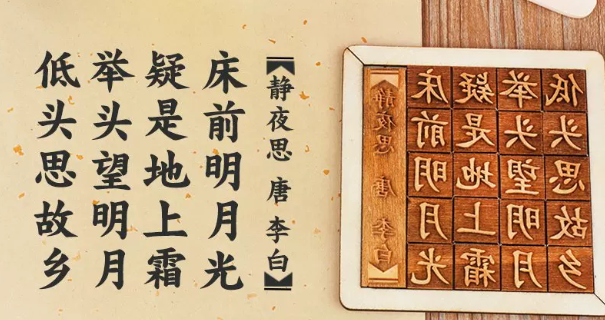 静夜思 唐 李白
床前明月光
疑是地上霜
举头望明月
低头思故乡
静夜思 唐 李白
床前明月光
疑是地上霜
举头望明月
低头思故乡